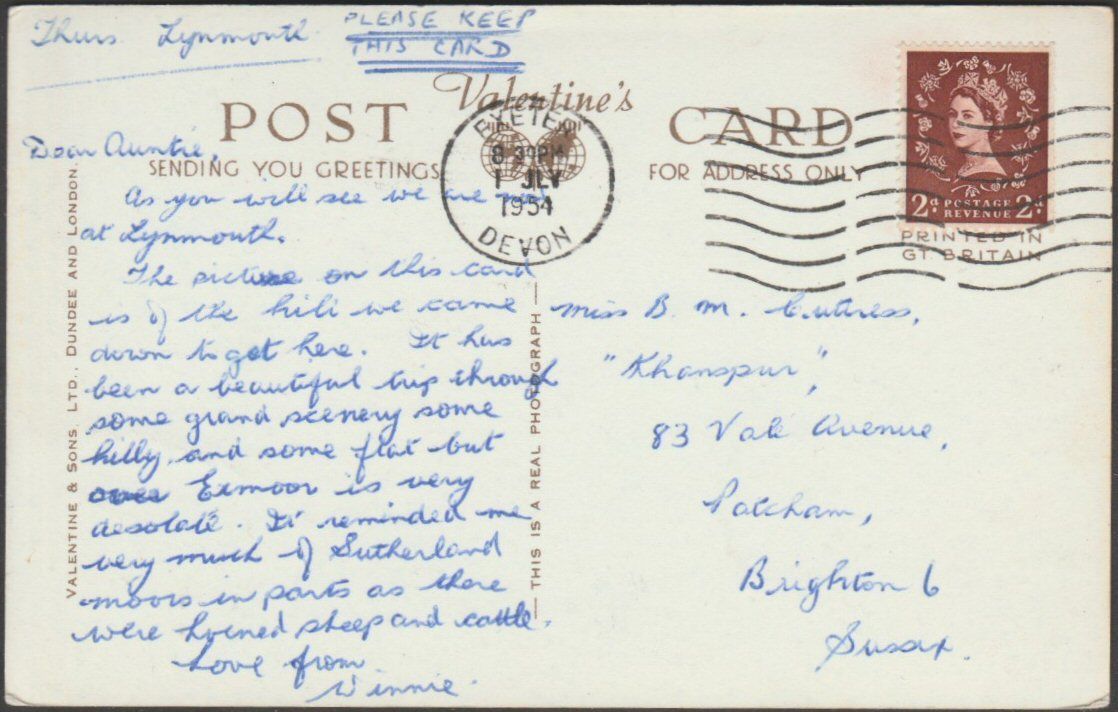 Thurs Lynmouth.
PLEASE KEEP
THIS CARD
Valentine's
POST CARD
SENDING YOU GREETINGS
FOR ADDRESS ONLY
EXETER
8 PM
1 JLY
1954
DEVON
2d POSTAGE 2d
REVENUE
PRINTED IN
GT. BRITAIN
Dear Auntie,
As you will see we are
at Lynmouth.
The picture on this card
is of the hill we came
down to get here. It has
been a beautiful trip through
some grand scenery some
hilly and some flat but
Exmoor is very
desolate. It reminded me
very much of Sutherland
moors in parts as there
were horned sheep and cattle.
Love from
Winnie.
Miss B. M. Cutress,
"Khanspur",
83 Vale Avenue,
Patcham,
Brighton 6
Sussex.
VALENTINE & SONS LTD., DUNDEE AND LONDON.
— THIS IS A REAL PHOTOGRAPH —